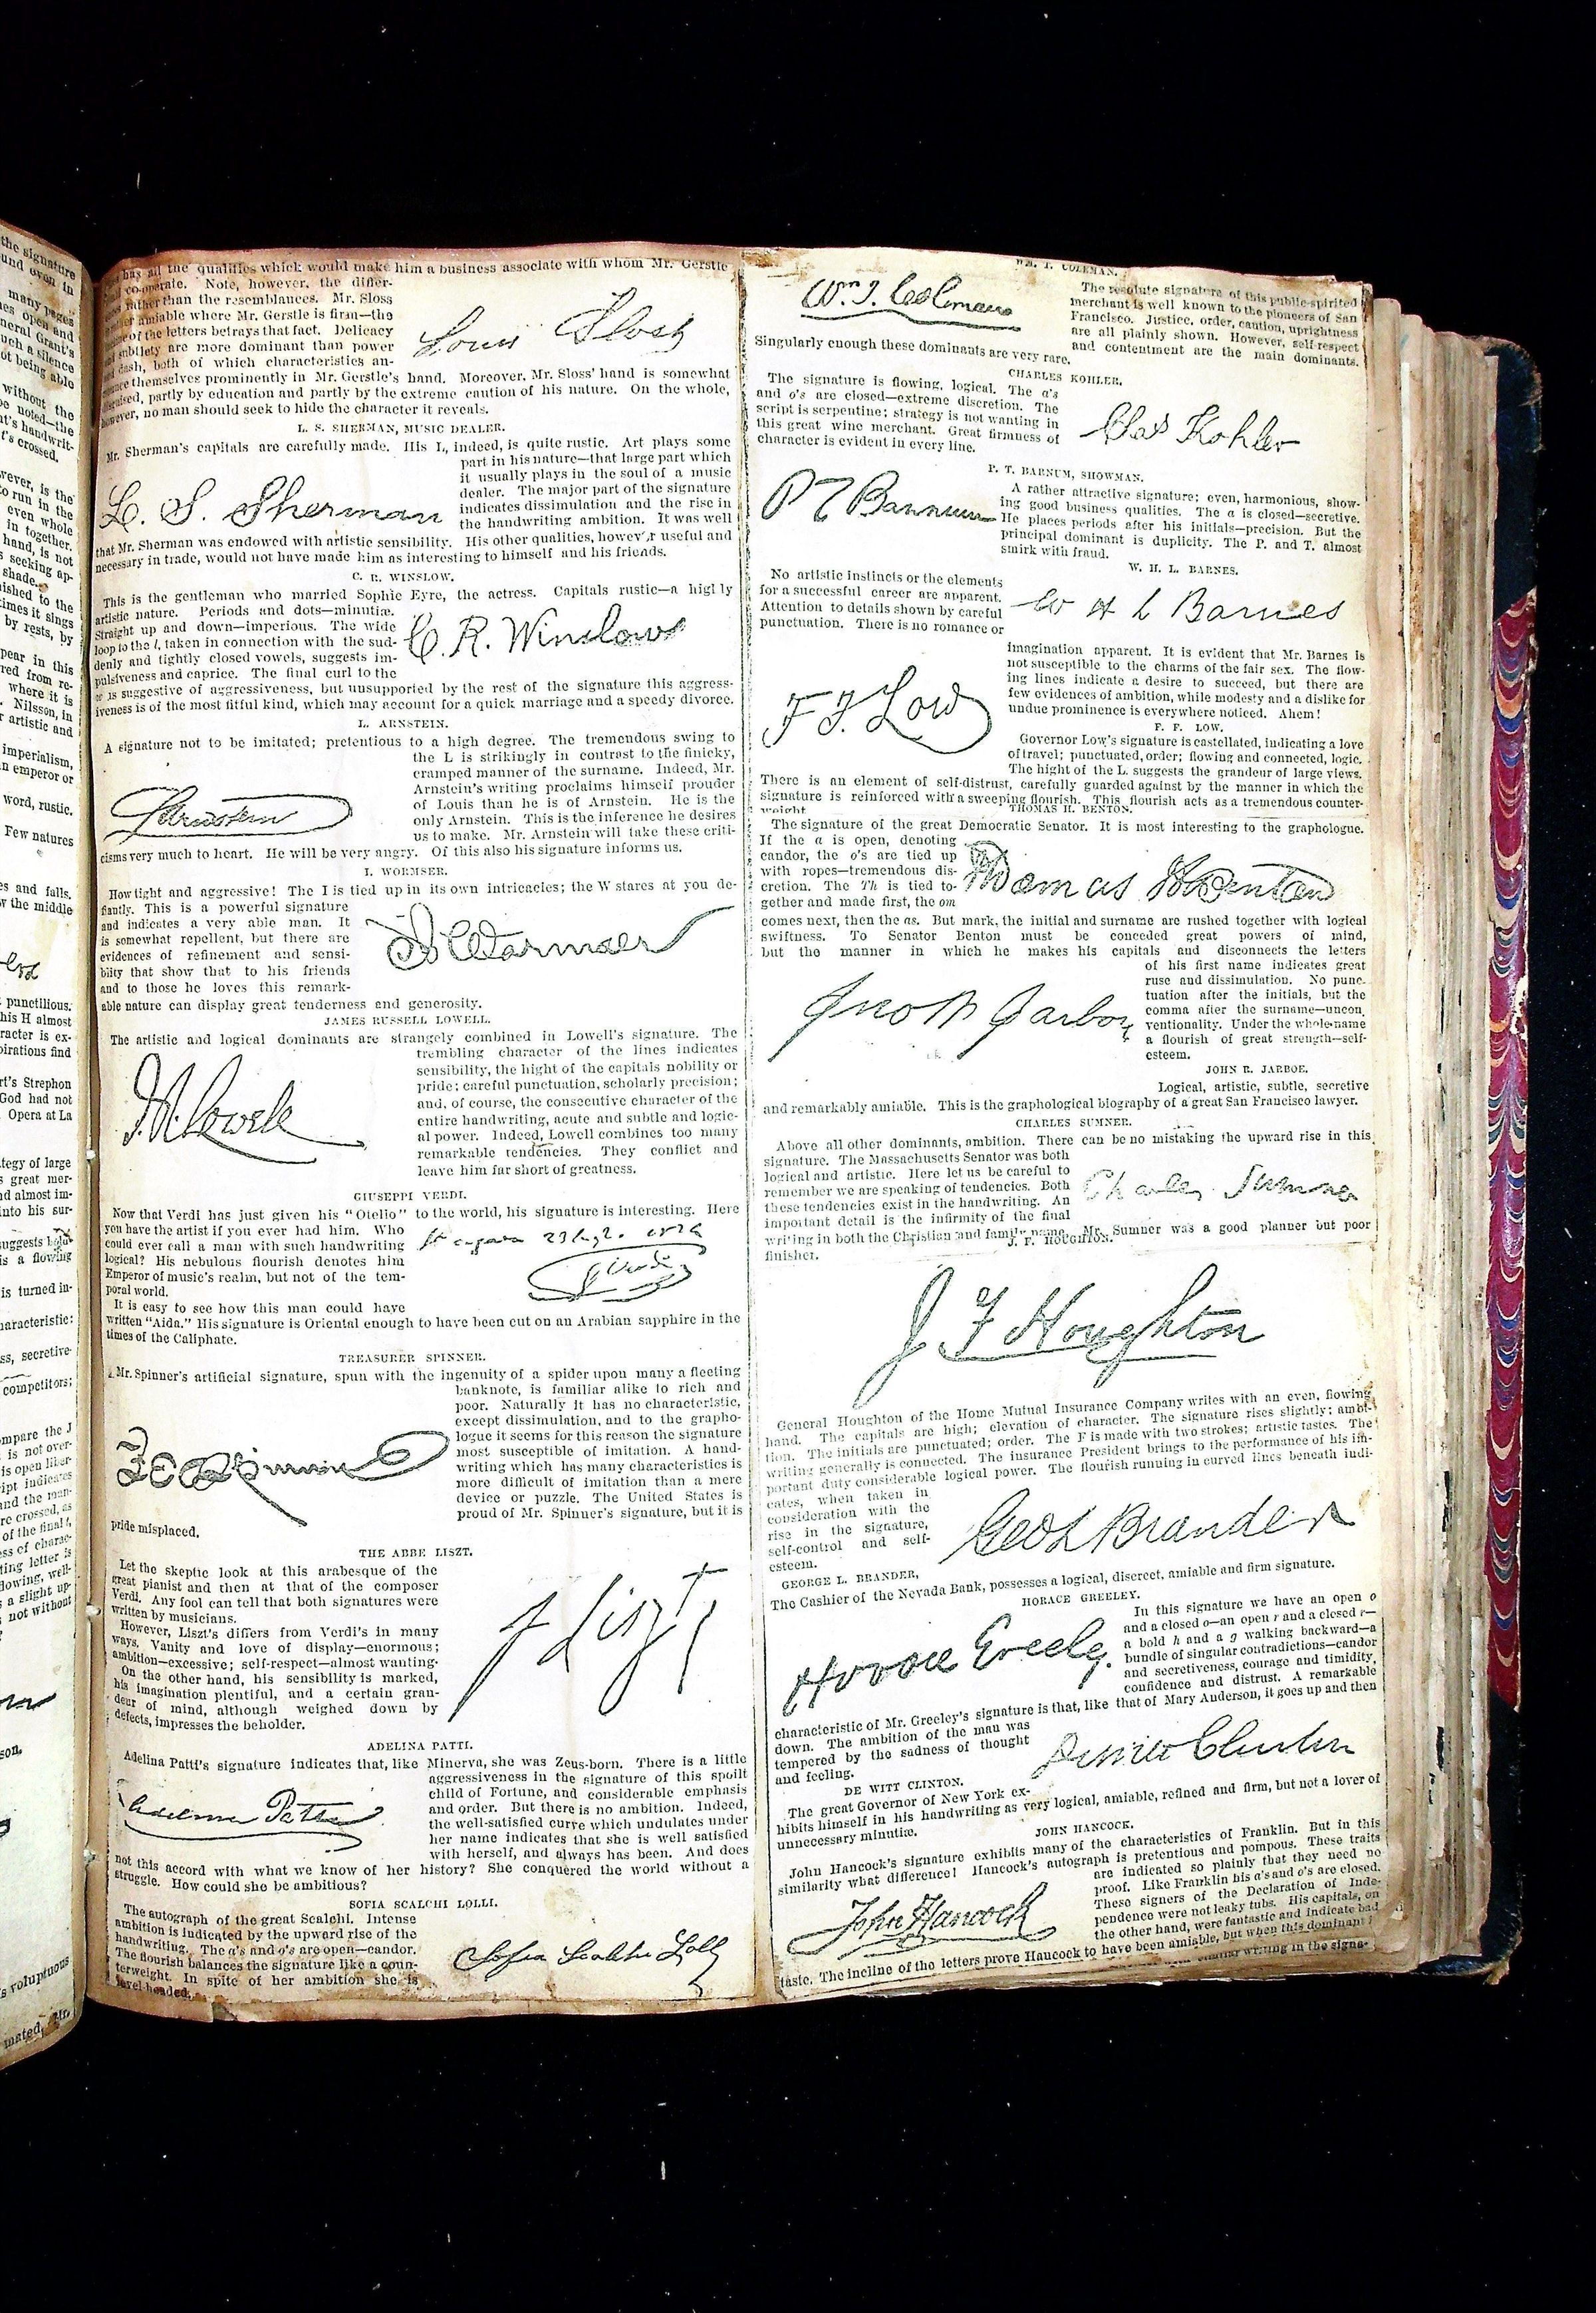 the signature
und even in
many pages
es open and
neral Grant's
uch a silence
ot being able
without the
be noted—the
nt's handwrit-
t's crossed.
wever, is the
to run in the
even whole
in together.
hand, is not
s seeking ap-
shade.
ished to the
times it sings
by rests, by
pear in this
red from re-
where it is
. Nilsson, in
r artistic and
imperialism,
n emperor or
word, rustic.
Few natures
es and falls.
w the middle
punctilious.
his H almost
racter is ex-
pirations find
rt's Strephon
God had not
Opera at La
tegy of large
s great mer-
nd almost im-
into his sur-
suggests
is a flowing
is turned in-
haracteristic:
ss, secretive
competitors;
mpare the J
is not over-
is open liber-
ipt indicates
and the man-
re crossed, as
of the final t,
ess of charac-
ting letter is
flowing, well-
a slight up-
not without
son.
s voluptuous
mated, Mr.
has all the qualities which would make him a business associate with whom Mr. Gerstle
co-operate. Note, however, the differ-
rather than the resemblances. Mr. Sloss
amiable where Mr. Gerstle is firm—the
of the letters betrays that fact. Delicacy
and subtlety are more dominant than power
and dash, both of which characteristics an-
Louis Sloss
nounce themselves prominently in Mr. Gerstle's hand. Moreover, Mr. Sloss' hand is somewhat
disguised, partly by education and partly by the extreme caution of his nature. On the whole,
however, no man should seek to hide the character it reveals.
L. S. SHERMAN, MUSIC DEALER.
Mr. Sherman's capitals are carefully made. His L, indeed, is quite rustic. Art plays some
part in his nature—that large part which
it usually plays in the soul of a music
dealer. The major part of the signature
indicates dissimulation and the rise in
the handwriting ambition. It was well
L. S. Sherman
that Mr. Sherman was endowed with artistic sensibility. His other qualities, however useful and
necessary in trade, would not have made him as interesting to himself and his friends.
C. R. WINSLOW.
This is the gentleman who married Sophie Eyre, the actress. Capitals rustic—a higl ly
artistic nature. Periods and dots—minutiæ.
Straight up and down—imperious. The wide
loop to the l, taken in connection with the sud-
denly and tightly closed vowels, suggests im-
pulsiveness and caprice. The final curl to the
C. R. Winslow
w is suggestive of aggressiveness, but unsupported by the rest of the signature this aggress-
iveness is of the most fitful kind, which may account for a quick marriage and a speedy divorce.
L. ARNSTEIN.
A signature not to be imitated; pretentious to a high degree. The tremendous swing to
the L is strikingly in contrast to the finicky,
cramped manner of the surname. Indeed, Mr.
Arnstein's writing proclaims himself prouder
of Louis than he is of Arnstein. He is the
only Arnstein. This is the inference he desires
us to make. Mr. Arnstein will take these criti-
L Arnstein
cisms very much to heart. He will be very angry. Of this also his signature informs us.
I. WORMSER.
How tight and aggressive! The I is tied up in its own intricacies; the W stares at you de-
fiantly. This is a powerful signature
and indicates a very able man. It
is somewhat repellent, but there are
evidences of refinement and sensi-
bility that show that to his friends
and to those he loves this remark-
I Wormser
able nature can display great tenderness and generosity.
JAMES RUSSELL LOWELL.
The artistic and logical dominants are strangely combined in Lowell's signature. The
trembling character of the lines indicates
sensibility, the hight of the capitals nobility or
pride; careful punctuation, scholarly precision;
and, of course, the consecutive character of the
entire handwriting, acute and subtle and logic-
al power. Indeed, Lowell combines too many
remarkable tendencies. They conflict and
leave him far short of greatness.
J. R. Lowell
GIUSEPPI VERDI.
Now that Verdi has just given his "Otello" to the world, his signature is interesting. Here
you have the artist if you ever had him. Who
could ever call a man with such handwriting
logical? His nebulous flourish denotes him
Emperor of music's realm, but not of the tem-
poral world.
G Verdi
It is easy to see how this man could have
written "Aida." His signature is Oriental enough to have been cut on an Arabian sapphire in the
times of the Caliphate.
TREASURER SPINNER.
Mr. Spinner's artificial signature, spun with the ingenuity of a spider upon many a fleeting
banknote, is familiar alike to rich and
poor. Naturally it has no characteristic,
except dissimulation, and to the grapho-
logue it seems for this reason the signature
most susceptible of imitation. A hand-
writing which has many characteristics is
more difficult of imitation than a mere
device or puzzle. The United States is
proud of Mr. Spinner's signature, but it is
pride misplaced.
THE ABBE LISZT.
Let the skeptic look at this arabesque of the
great pianist and then at that of the composer
Verdi. Any fool can tell that both signatures were
written by musicians.
However, Liszt's differs from Verdi's in many
ways. Vanity and love of display—enormous;
ambition—excessive; self-respect—almost wanting.
On the other hand, his sensibility is marked,
his imagination plentiful, and a certain gran-
deur of mind, although weighed down by
defects, impresses the beholder.
F Liszt
ADELINA PATTI.
Adelina Patti's signature indicates that, like Minerva, she was Zeus-born. There is a little
aggressiveness in the signature of this spoilt
child of Fortune, and considerable emphasis
and order. But there is no ambition. Indeed,
the well-satisfied curve which undulates under
her name indicates that she is well satisfied
with herself, and always has been. And does
Adelina Patti
not this accord with what we know of her history? She conquered the world without a
struggle. How could she be ambitious?
SOFIA SCALCHI LOLLI.
The autograph of the great Scalchi. Intense
ambition is indicated by the upward rise of the
handwriting. The a's and o's are open—candor.
The flourish balances the signature like a coun-
terweight. In spite of her ambition she is
level-headed.
Sofia Scalchi Lolli
WM. T. COLEMAN.
Wm. T. Coleman
The resolute signature of this public-spirited
merchant is well known to the pioneers of San
Francisco. Justice, order, caution, uprightness
are all plainly shown. However, self-respect
and contentment are the main dominants.
Singularly enough these dominants are very rare.
CHARLES KOHLER.
The signature is flowing, logical. The a's
and o's are closed—extreme discretion. The
script is serpentine; strategy is not wanting in
this great wine merchant. Great firmness of
character is evident in every line.
Chas Kohler
P. T. BARNUM, SHOWMAN.
P T Barnum
A rather attractive signature; even, harmonious, show-
ing good business qualities. The a is closed—secretive.
He places periods after his initials—precision. But the
principal dominant is duplicity. The P. and T. almost
smirk with fraud.
W. H. L. BARNES.
No artistic instincts or the elements
for a successful career are apparent.
Attention to details shown by careful
punctuation. There is no romance or
W H L Barnes
imagination apparent. It is evident that Mr. Barnes is
not susceptible to the charms of the fair sex. The flow-
ing lines indicate a desire to succeed, but there are
few evidences of ambition, while modesty and a dislike for
undue prominence is everywhere noticed. Ahem!
F. F. LOW.
F F Low
Governor Low's signature is castellated, indicating a love
of travel; punctuated, order; flowing and connected, logic.
The hight of the L. suggests the grandeur of large views.
There is an element of self-distrust, carefully guarded against by the manner in which the
signature is reinforced with a sweeping flourish. This flourish acts as a tremendous counter-
weight.
THOMAS H. BENTON.
The signature of the great Democratic Senator. It is most interesting to the graphologue.
If the a is open, denoting
candor, the o's are tied up
with ropes—tremendous dis-
cretion. The Th is tied to-
gether and made first, the om
Thomas H Benton
comes next, then the as. But mark, the initial and surname are rushed together with logical
swiftness. To Senator Benton must be conceded great powers of mind,
but the manner in which he makes his capitals and disconnects the letters
of his first name indicates great
ruse and dissimulation. No punc-
tuation after the initials, but the
comma after the surname—uncon
ventionality. Under the whole name
a flourish of great strength—self-
esteem.
Jno R Jarboe
JOHN R. JARBOE.
Logical, artistic, subtle, secretive
and remarkably amiable. This is the graphological biography of a great San Francisco lawyer.
CHARLES SUMNER.
Above all other dominants, ambition. There can be no mistaking the upward rise in this
signature. The Massachusetts Senator was both
logical and artistic. Here let us be careful to
remember we are speaking of tendencies. Both
these tendencies exist in the handwriting. An
important detail is the infirmity of the final
Charles Sumner
writing in both the Christian and family name. Mr. Sumner was a good planner but poor
finisher.
J. F. HOUGHTON.
J F Houghton
General Houghton of the Home Mutual Insurance Company writes with an even, flowing
hand. The capitals are high; elevation of character. The signature rises slightly; ambi-
tion. The initials are punctuated; order. The F is made with two strokes; artistic tastes. The
writing generally is connected. The insurance President brings to the performance of his im-
portant duty considerable logical power. The flourish running in curved lines beneath indi-
cates, when taken in
consideration with the
rise in the signature,
self-control and self-
esteem.
Geo L Brander
GEORGE L. BRANDER,
The Cashier of the Nevada Bank, possesses a logical, discreet, amiable and firm signature.
HORACE GREELEY.
Horace Greeley.
In this signature we have an open o
and a closed o—an open r and a closed r—
a bold h and a g walking backward—a
bundle of singular contradictions—candor
and secretiveness, courage and timidity,
confidence and distrust. A remarkable
characteristic of Mr. Greeley's signature is that, like that of Mary Anderson, it goes up and then
down. The ambition of the man was
tempered by the sadness of thought
and feeling.
DeWitt Clinton
DE WITT CLINTON.
The great Governor of New York ex-
hibits himself in his handwriting as very logical, amiable, refined and firm, but not a lover of
unnecessary minutiæ.
JOHN HANCOCK.
John Hancock's signature exhibits many of the characteristics of Franklin. But in this
similarity what difference! Hancock's autograph is pretentious and pompous. These traits
are indicated so plainly that they need no
proof. Like Franklin his a's and o's are closed.
These signers of the Declaration of Inde-
pendence were not leaky tubs. His capitals, on
the other hand, were fantastic and indicate bad
John Hancock
taste. The incline of the letters prove Hancock to have been amiable, but when this dominant
writing in the signa-